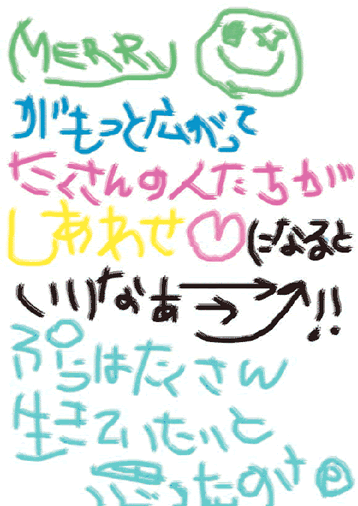 MERRY
がもっと広がって
たくさんの人たちが
しあわせ♡になると
いいなぁ→→!!
ぷらはたくさん
生きていたいと